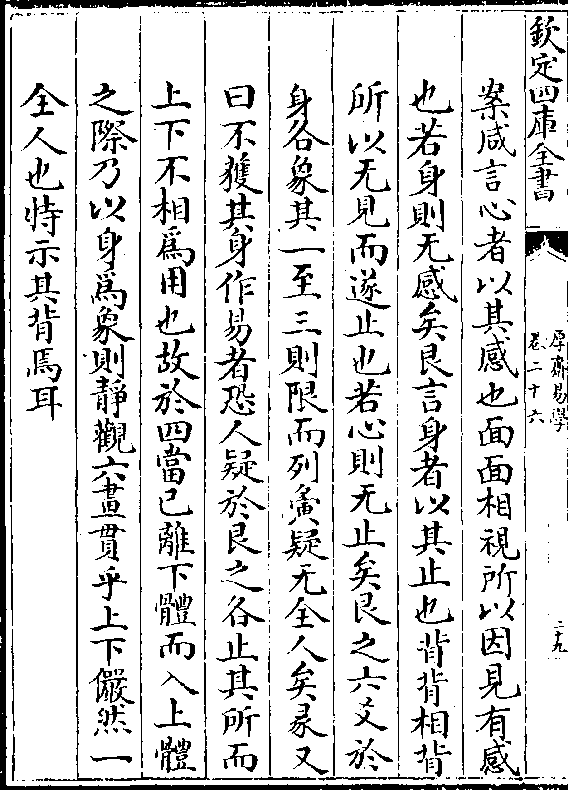 欽定四庫全書
厚齋易學
卷二十六
二十九
案咸言心者以其感也面面相視所以因見有感
也若身則无感矣艮言身者以其止也背背相背
所以无見而遂止也若心則无止矣艮之六爻於
身各象其一至三則限而列夤疑无全人矣彖又
曰不獲其身作易者恐人疑於艮之各止其所而
上下不相爲用也故於四當已離下體而入上體
之際乃以身爲象則靜觀六畫貫乎上下儼然一
全人也特示其背焉耳